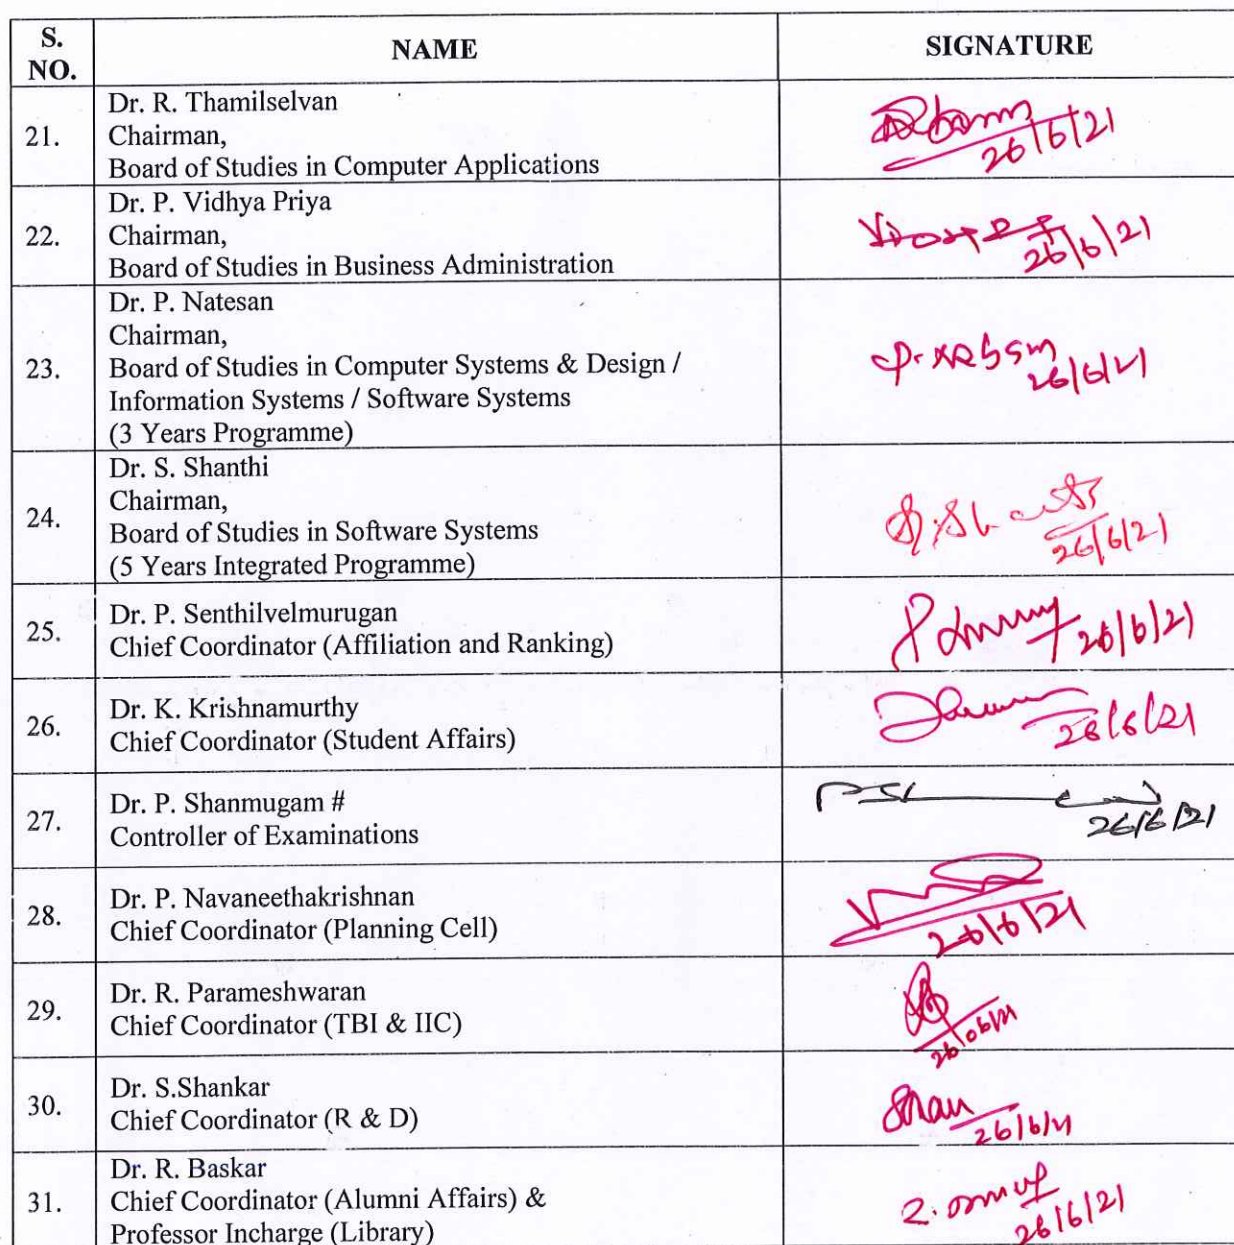 S. NO. NAME SIGNATURE
21. Dr. R. Thamilselvan
Chairman,
Board of Studies in Computer Applications
26/6/21
22. Dr. P. Vidhya Priya
Chairman,
Board of Studies in Business Administration
26/6/21
23. Dr. P. Natesan
Chairman,
Board of Studies in Computer Systems & Design /
Information Systems / Software Systems
(3 Years Programme)
26/6/21
24. Dr. S. Shanthi
Chairman,
Board of Studies in Software Systems
(5 Years Integrated Programme)
26/6/21
25. Dr. P. Senthilvelmurugan
Chief Coordinator (Affiliation and Ranking)
26/6/21
26. Dr. K. Krishnamurthy
Chief Coordinator (Student Affairs)
26/6/21
27. Dr. P. Shanmugam #
Controller of Examinations
26/6/21
28. Dr. P. Navaneethakrishnan
Chief Coordinator (Planning Cell)
26/6/21
29. Dr. R. Parameshwaran
Chief Coordinator (TBI & IIC)
26/06/21
30. Dr. S.Shankar
Chief Coordinator (R & D)
26/6/21
31. Dr. R. Baskar
Chief Coordinator (Alumni Affairs) &
Professor Incharge (Library)
26/6/21